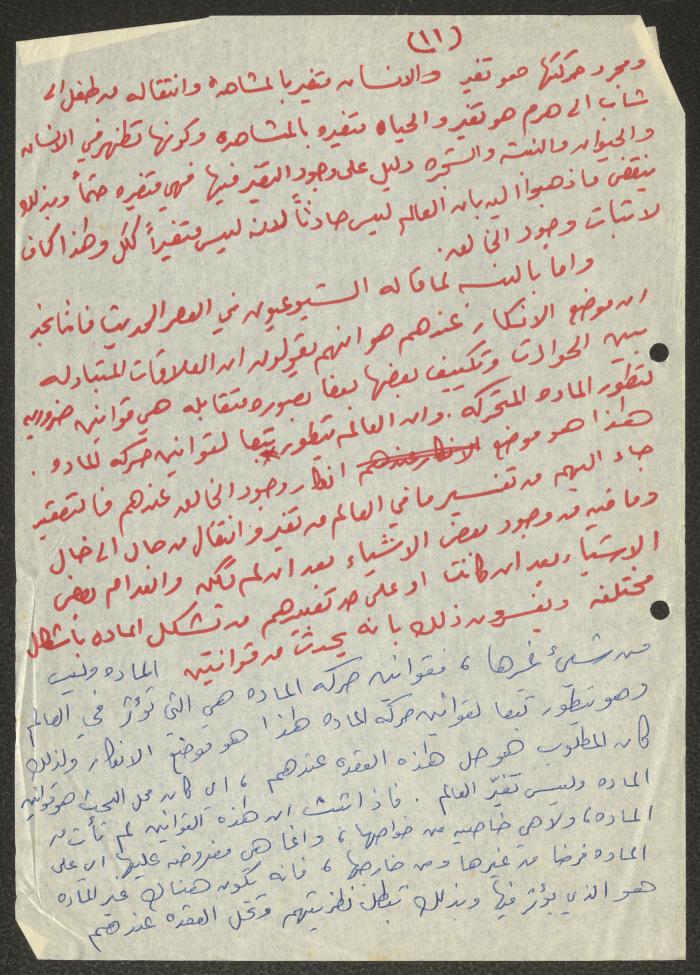 (١١)
ومجرد حركتها هو تغير والانسان متغير بالمشاهدة وانتقاله من طفل الى
شاب الى هرم هو تغير والحياه متغيره بالمشاهده وكونها تظهر في الانسان
والحيوان والنبتة والشجره دليل على وجود التغير فيها فهي متغيره حتماً وبذلك
ينقض ما ذهبوا اليه بان العالم ليس حادثاً لانه ليس متغيراً ككل وهذا كاف
لاثبات وجود الخالق.
واما بالنسبه لما قاله الشيوعيون في العصر الحديث فاننا نجد
ان موضع الانكار عندهم هو انهم يقولون ان العلاقات المتبادله
بين الحوادث وتكييف بعضها بعضا بصوره متقابله هي قوانين ضروريه
لتطور الماده المتحركه. وان العالم يتطور تبعا لقوانين حركه الماده.
هذا هو موضع انكار وجود الخالق عندهم فالتعقيد
جاء اليهم من تفسير ما في العالم من تغير وانتقال من حال الى حال
وما فيه من وجود بعض الاشياء بعد ان لم تكن وانعدام بعض
الاشياء بعد ان كانت او على حد تعبيرهم من تشكل الماده باشكال
مختلفه ويفسرون ذلك بانه يحدث من قوانين الماده وليس
من شيئ غيرها، فقوانين حركه الماده هي التي تؤثر في العالم
وهو يتطور تبعا لقوانين حركة الماده هذا هو موضع الانكار ولذلك
كان المطلوب هو حل هذه العقده عندهم، اي كان محل البحث هو قوانين
الماده وليس تغيّر العالم. فاذا ثبت ان هذه القوانين لم تأت من
الماده، ولا هي خاصيه من خواصها، وانما هي مفروضه عليها اي على
الماده فرضا من غيرها ومن خارجها، فانه يكون هنالك غير الماده
هو الذي يؤثر فيها وبذلك تبطل نظريتهم وتحل العقده عندهم